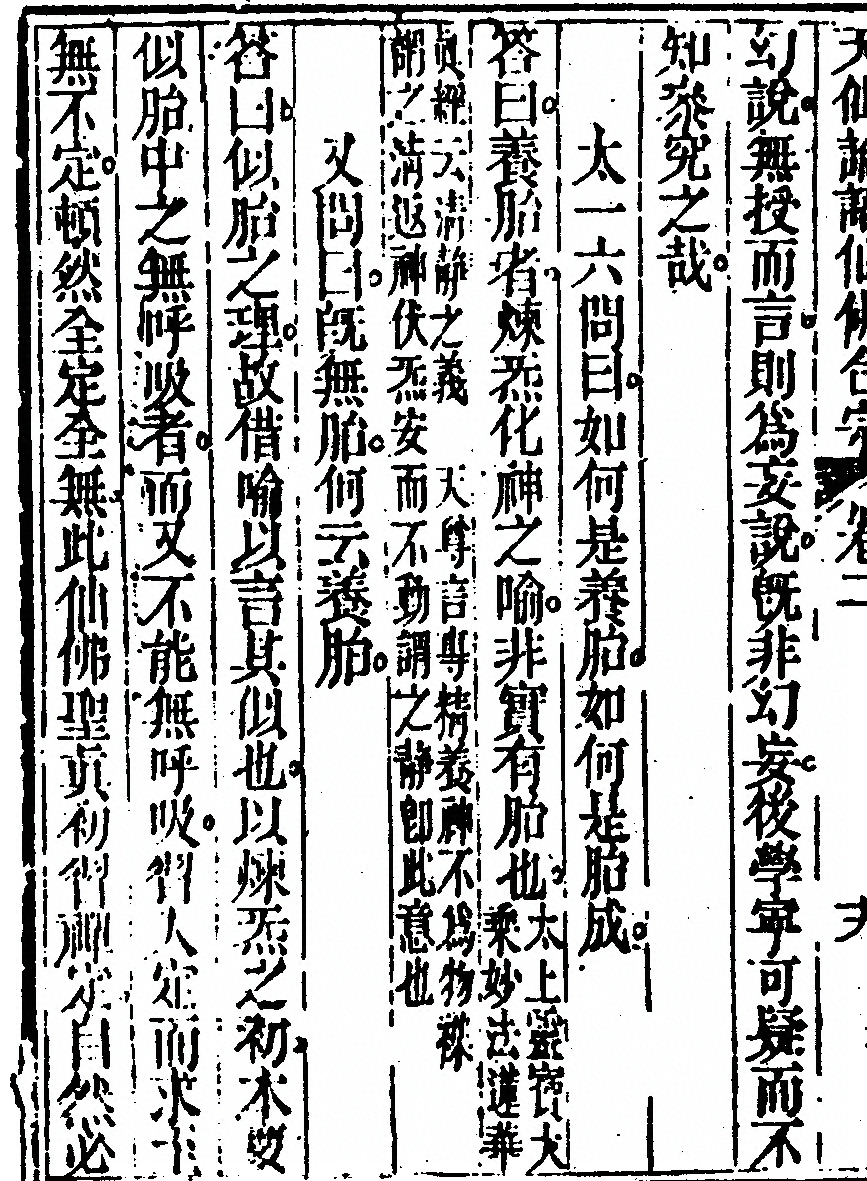 天仙論語仙佛合宗 卷二
幻說無授而言則為妄說既非幻妄後學寧可疑而不
知叅究之哉
太一六問曰如何是養胎如何是胎成
答曰養胎者煉炁化神之喻非實有胎也太上靈寶大
乘妙法蓮華
真經云清静之義 天尊言專精養神不為物襍
謂之清返神伏炁安而不動謂之静即此意也
又問曰既無胎何云養胎
答曰似胎之理故借喻以言其似也以煉炁之初本
似胎中之無呼吸者而又不能無呼吸習入定而求
無不定頓然全定全無此仙佛聖真初習禪定自然必